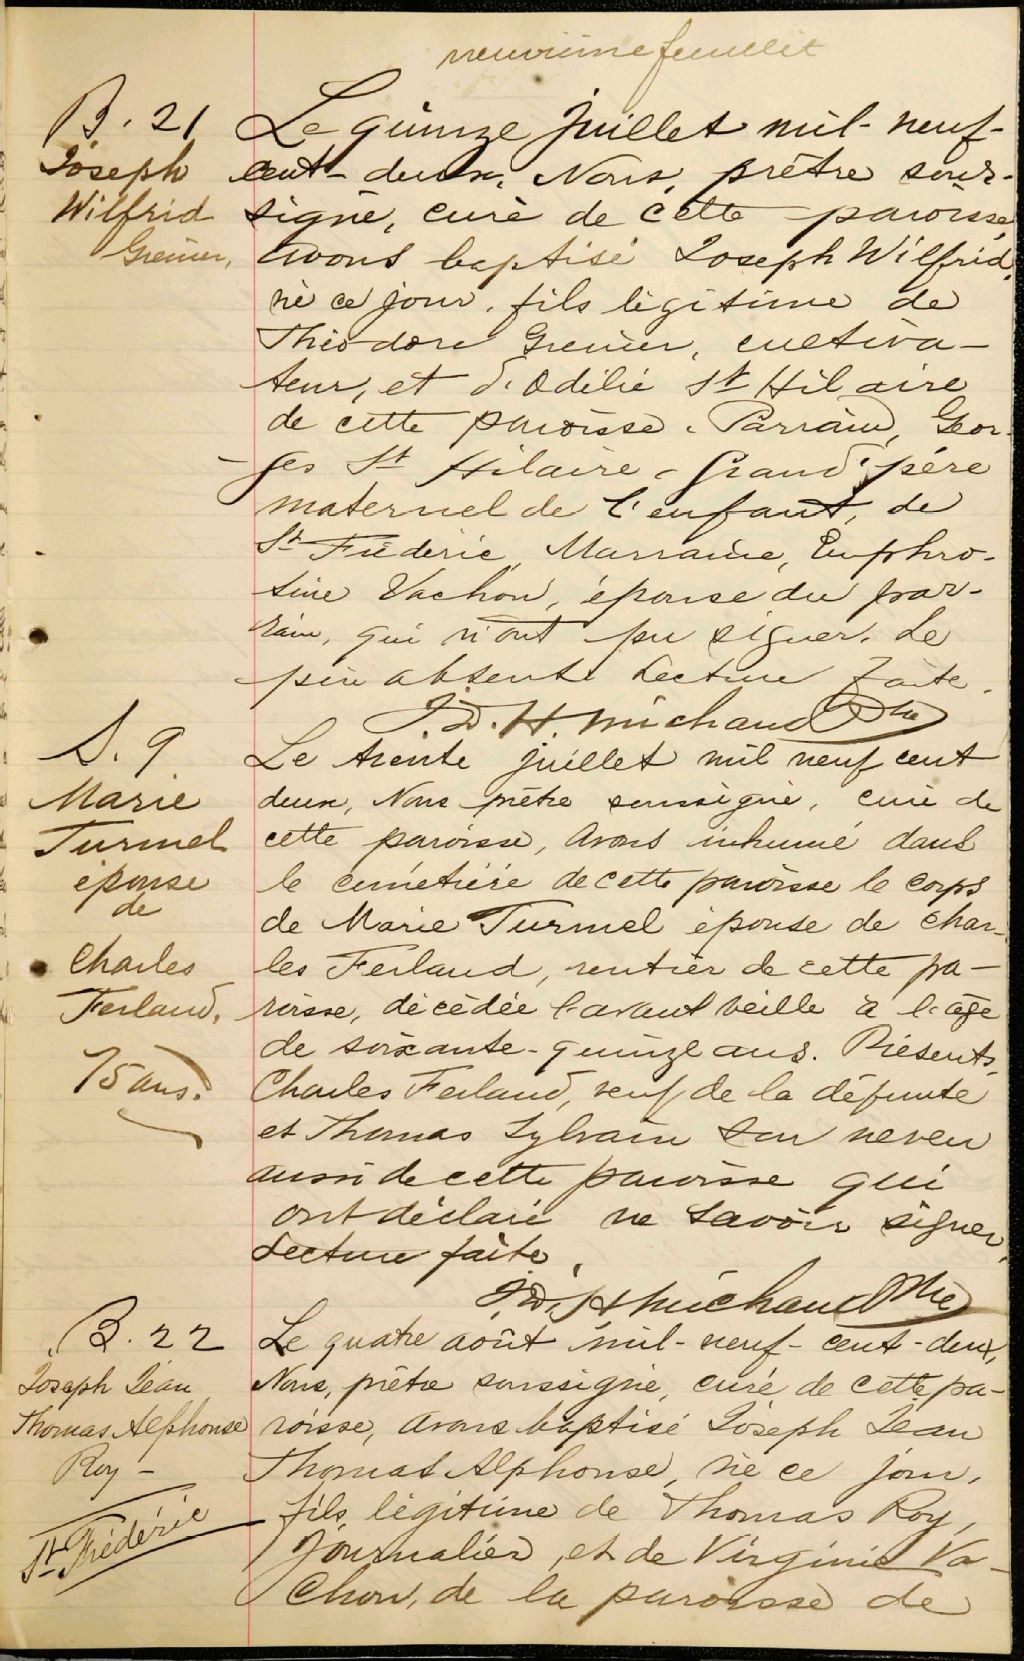 neuvième feuillet
B. 21
Joseph
Wilfrid
Grenier,
Le quinze juillet mil-neuf-
cent-deux, Nous, prêtre sous-
signé, curé de cette paroisse
avons baptisé Joseph Wilfrid,
né ce jour, fils légitime de
Théodore Grenier, cultiva-
teur, et d'Odélie St Hilaire
de cette paroisse. Parrain, Geor-
ges St Hilaire, Grand'père
maternel de l'enfant, de
St Fréderic, Marraine, Euphro-
sine Vachon, épouse du par-
rain, qui n'ont pu signer. Le
père absent. Lecture faite.
J. D. H. Michaud Ptre
S. 9
Marie
Turmel
épouse
de
Charles
Ferland,
75 ans.
Le trente juillet mil neuf cent
deux, Nous prêtre soussigné, curé de
cette paroisse, avons inhumé dans
le cimétière de cette paroisse le corps
de Marie Turmel épouse de Char-
les Ferland, rentier de cette pa-
roisse, décédée l'avant veille à l'âge
de soixante-quinze ans. Présents,
Charles Ferland, veuf de la défunte
et Thomas Sylvain son neveu
aussi de cette paroisse qui
ont déclaré ne savoir signer.
Lecture faite.
J. D. H Michaud Ptre
B. 22
Joseph Jean
Thomas Alphonse
Roy -
St Frédéric
Le quatre août mil-neuf-cent-deux,
Nous, prêtre soussigné, curé de cette pa-
roisse, avons baptisé Joseph Jean
Thomas Alphonse, né ce jour,
fils légitime de Thomas Roy,
Journalier, et de Virginie Va-
chon, de la paroisse de